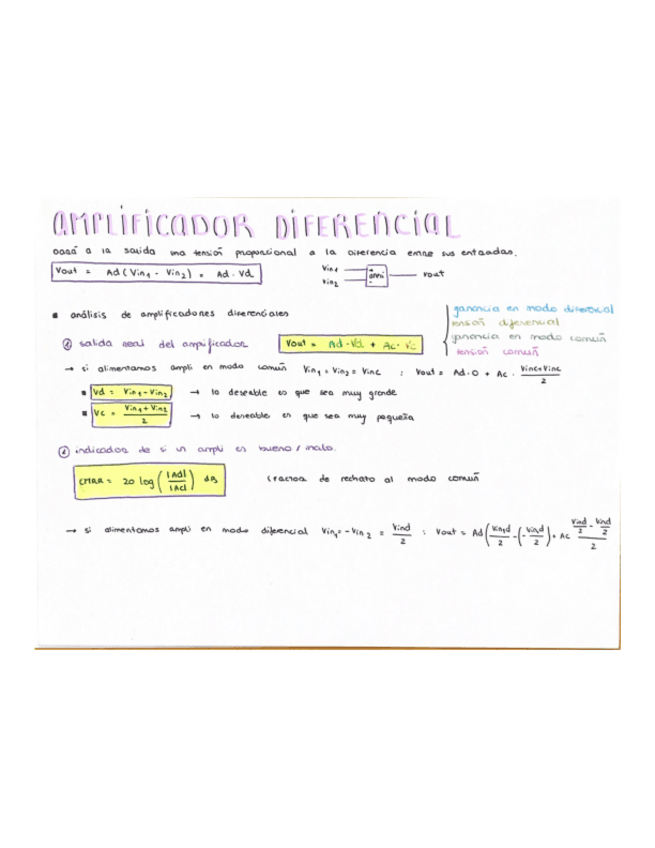 AMPLIFICADOR DIFERENCIAL
dará a la salida una tensión proporcional a la diferencia entre sus entradas.
Vout = Ad (Vin1 - Vin2) = Ad · Vd
Vin1
Vin2
+
-
ampli
vout
▪ análisis de amplificadores diferenciales
ganancia en modo diferencial
tensión diferencial
ganancia en modo común
tensión común
① salida real del amplificador
Vout = Ad·Vd + Ac·Vc
→ si alimentamos ampli en modo común Vin1 = Vin2 = Vinc : Vout = Ad·0 + Ac · (Vinc+Vinc)/2
▪ Vd = Vin1 - Vin2 → lo deseable es que sea muy grande
▪ Vc = (Vin1 + Vin2)/2 → lo deseable es que sea muy pequeña
② indicador de si un ampli es bueno / malo.
CMRR = 20 log (|Ad|/|Ac|) dB
(factor de rechazo al modo común
→ si alimentamos ampli en modo diferencial Vin1 = -Vin2 = Vind/2 : Vout = Ad (Vind/2 - (-Vind/2)) + Ac (Vind/2 - Vind/2)/2